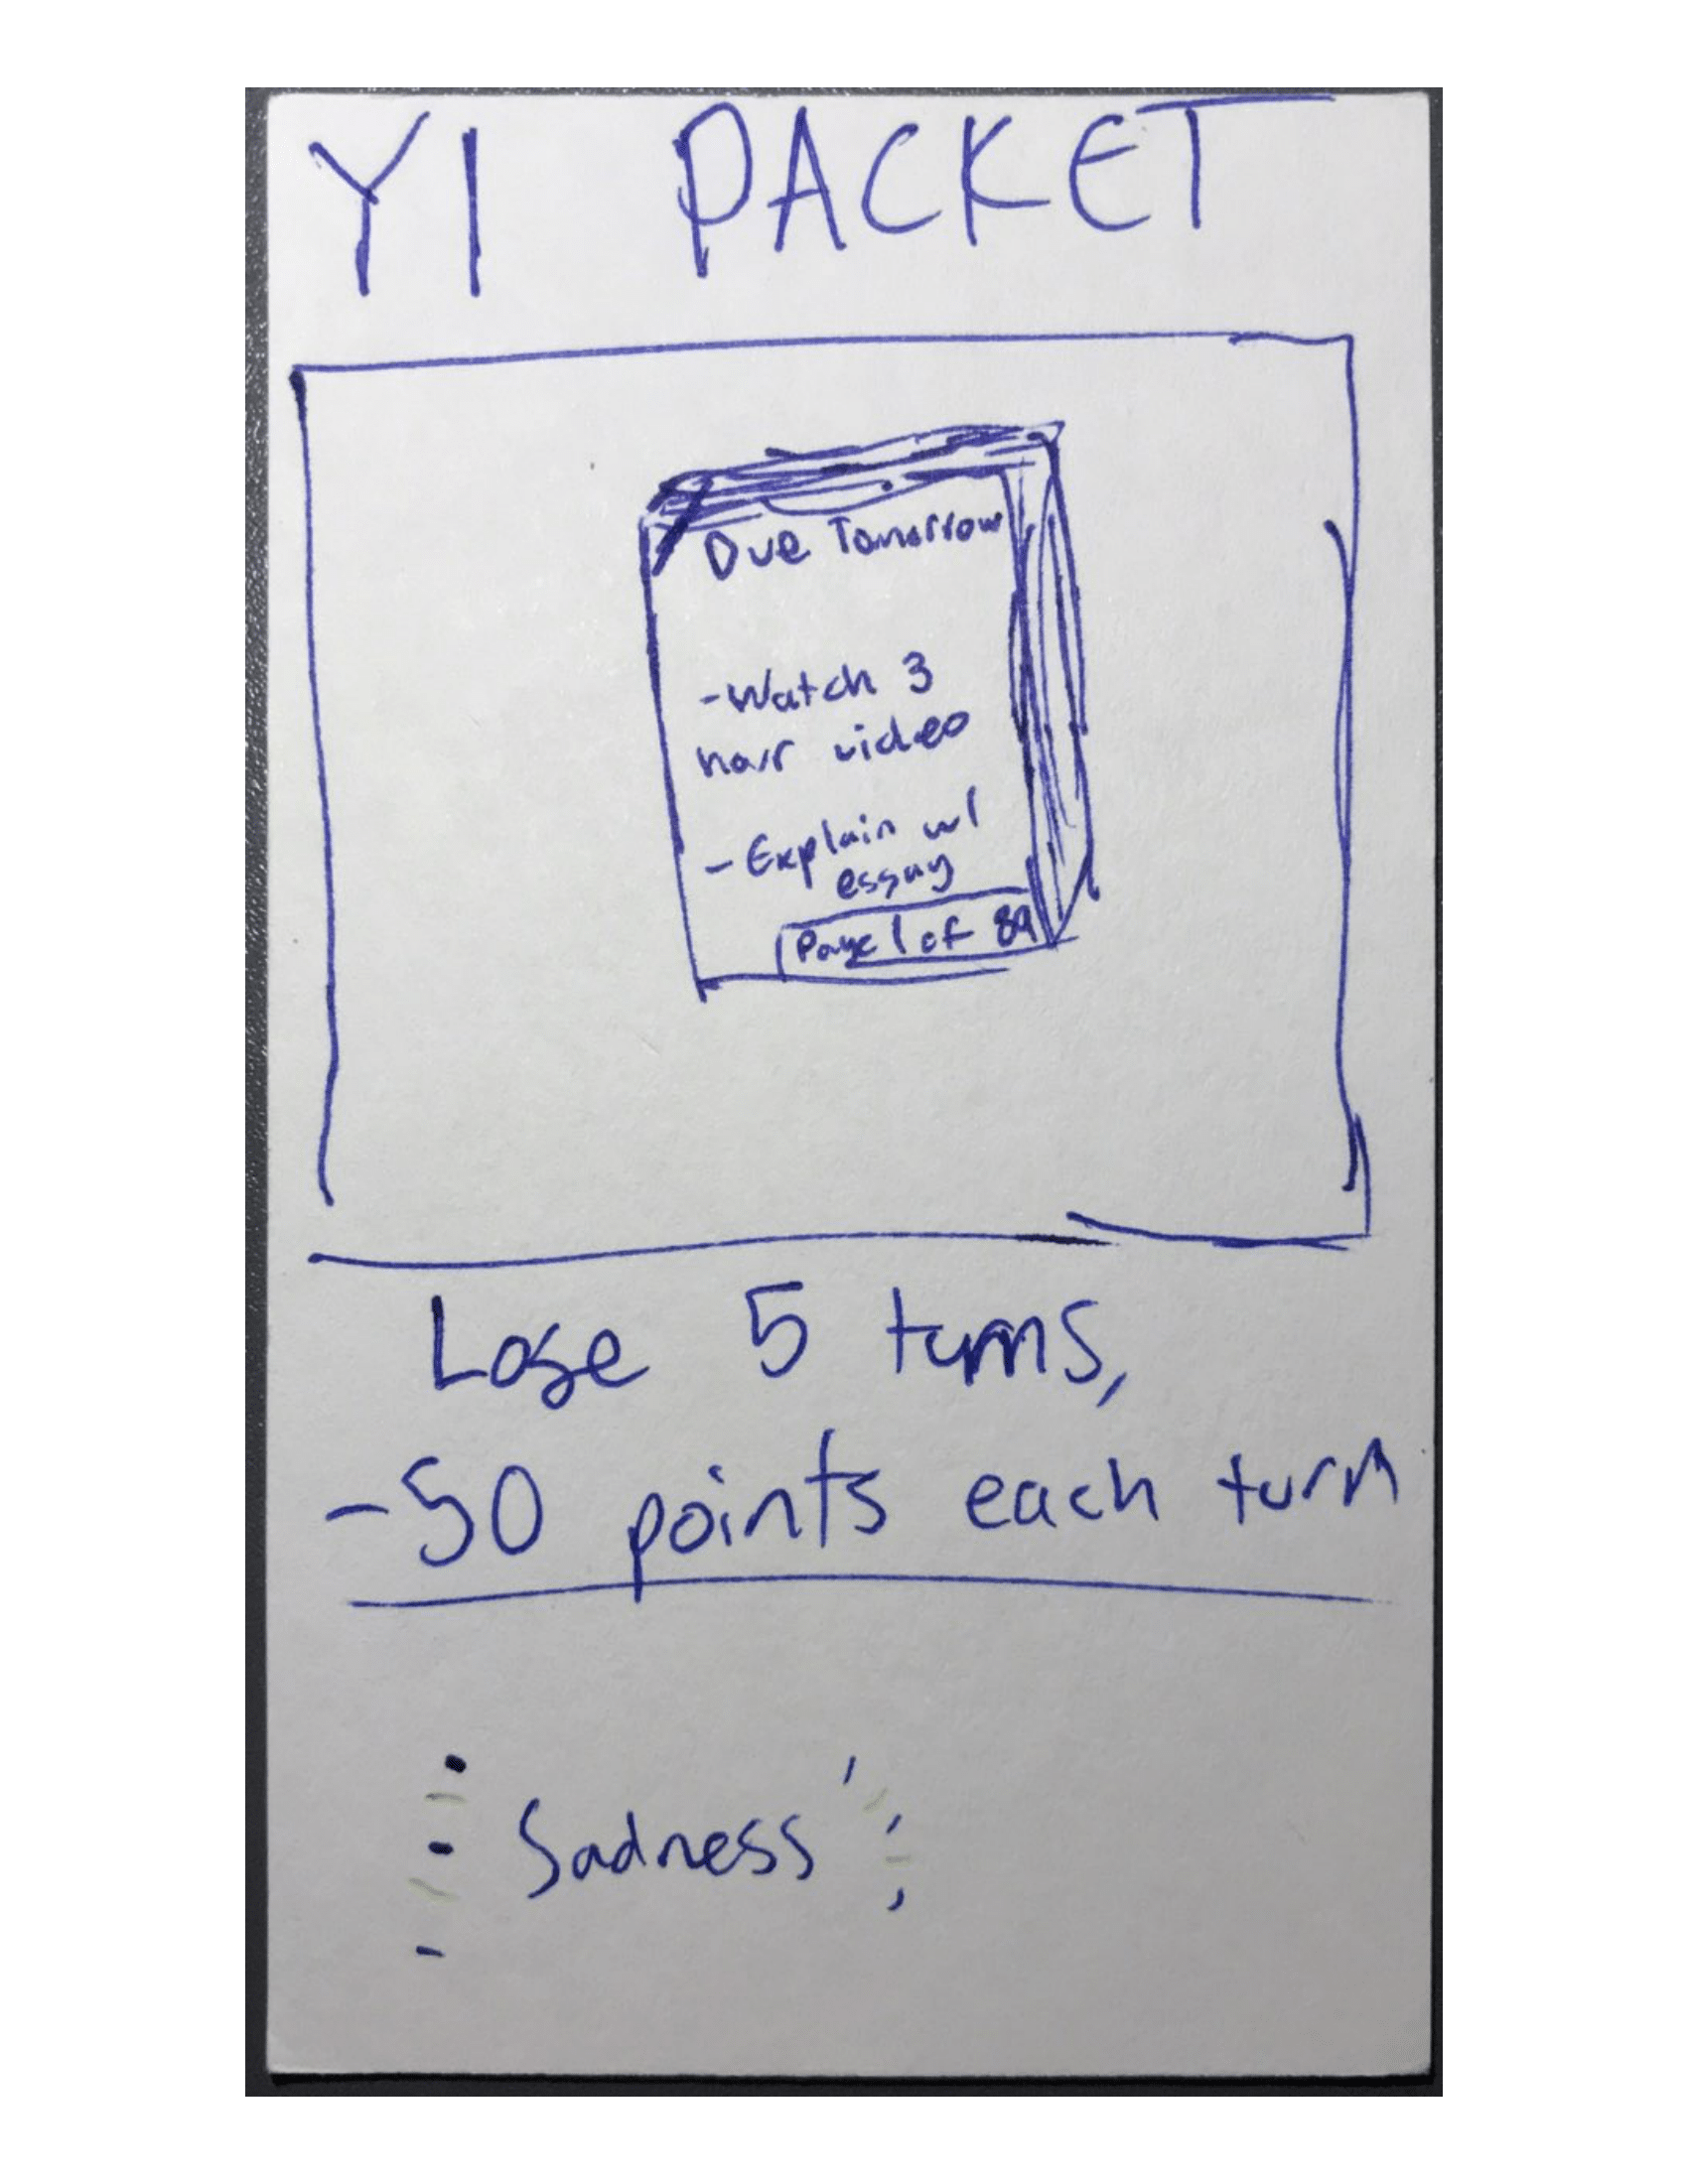 YI PACKET
Due Tomorrow
-Watch 3
hour video
- Explain w/
essay
Page 1 of 89
Lose 5 turns,
-50 points each turn
Sadness